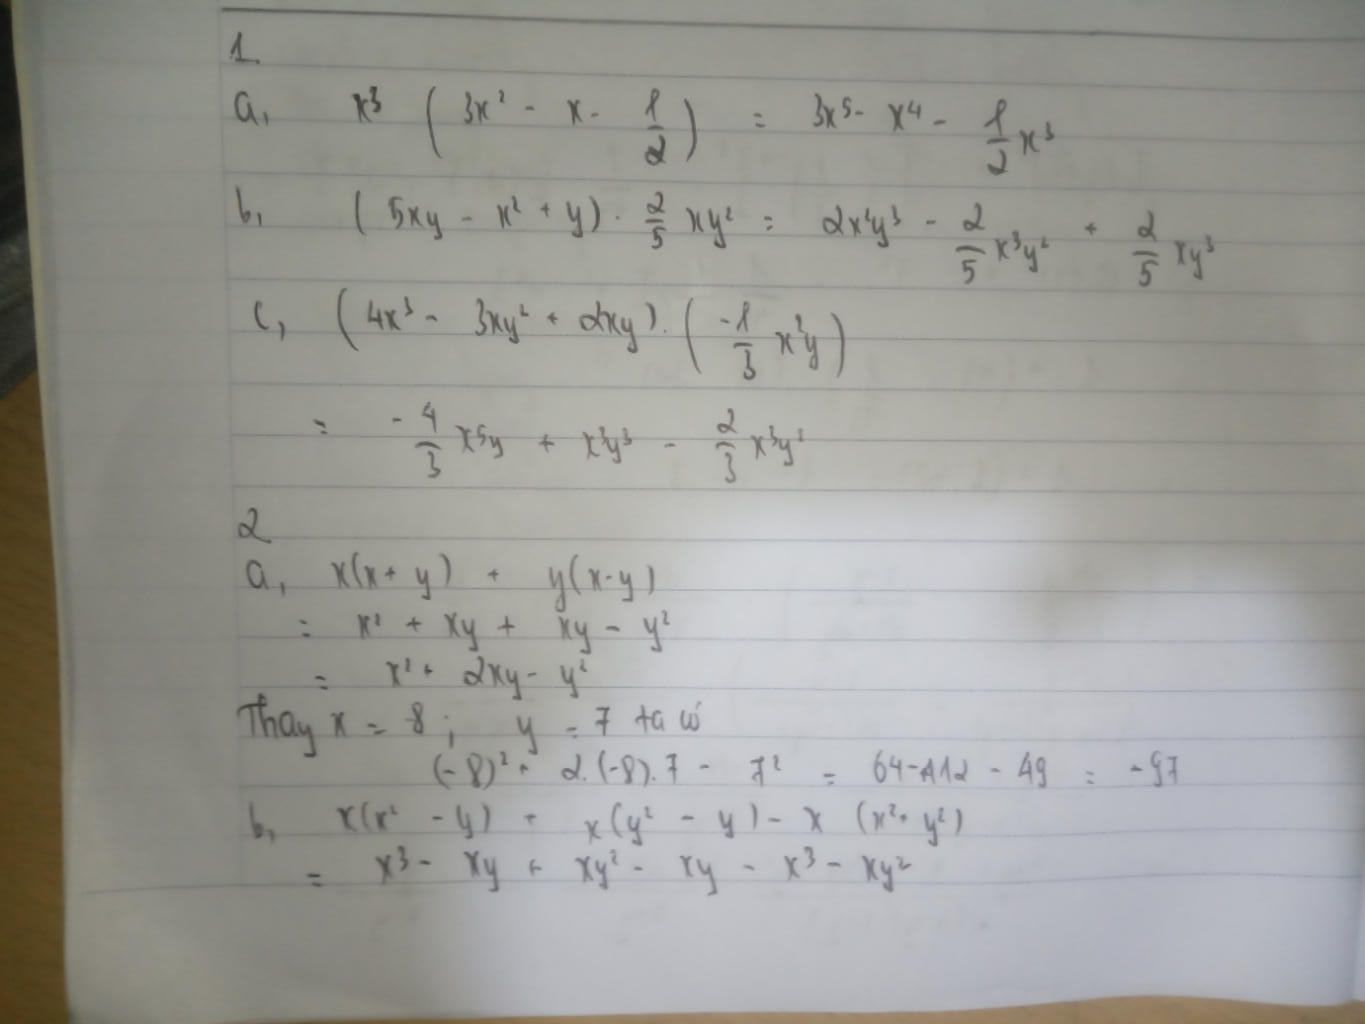 1
a, x³ ( 3x² - x - 1/2 ) = 3x⁵ - x⁴ - 1/2 x³
b, ( 5xy - x² + y ) . 2/5 xy² = 2x²y³ - 2/5 x³y² + 2/5 xy³
c, ( 4x³ - 3xy² + 2xy ) . ( -1/3 x²y )
= -4/3 x⁵y + x³y³ - 2/3 x³y²
2
a, x(x + y) + y(x - y)
= x² + xy + xy - y²
= x² + 2xy - y²
Thay x = -8 ; y = 7 ta có
(-8)² + 2.(-8).7 - 7² = 64 - 112 - 49 = -97
b, x(x² - y) + x(y² - y) - x (x² + y²)
= x³ - xy + xy² - xy - x³ - xy²